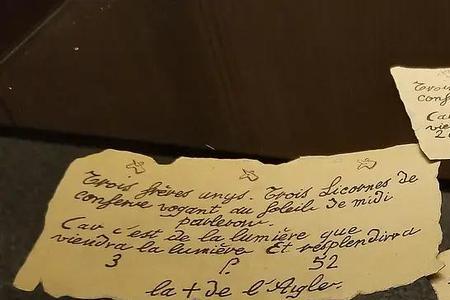 Trois frères unys. Trois Licornes de
conserve vogant au soleil de midi
parleron.
Car c'est de la lumière que
viendra la lumière Et resplendira
3 ? 52
la + de l'Aigle.
Trois
conf
Ca
vie
2